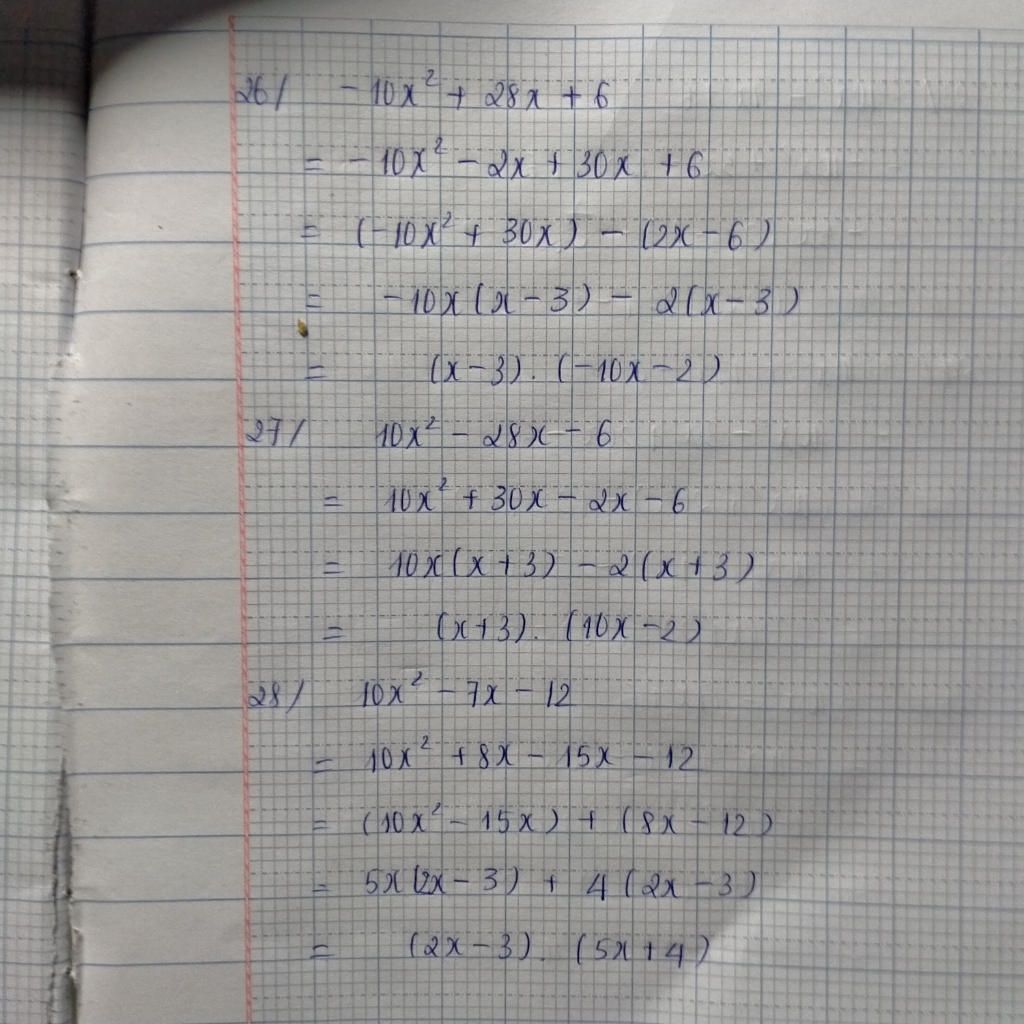 26/ -10x² + 28x + 6
= -10x² - 2x + 30x + 6
= (-10x² + 30x) - (2x - 6)
= -10x(x - 3) - 2(x - 3)
= (x - 3). (-10x - 2)
27/ 10x² - 28x - 6
= 10x² + 30x - 2x - 6
= 10x(x + 3) - 2(x + 3)
= (x + 3). (10x - 2)
28/ 10x² - 7x - 12
= 10x² + 8x - 15x - 12
= (10x² - 15x) + (8x - 12)
= 5x(2x - 3) + 4(2x - 3)
= (2x - 3). (5x + 4)